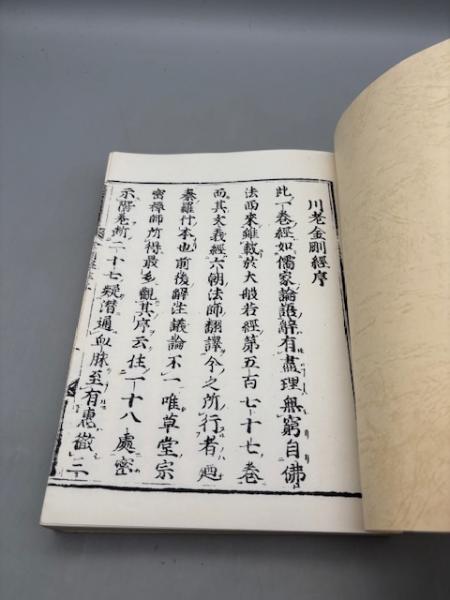 川老金剛經序
此一卷經如儒家論語辭有盡理無窮自佛
法西來雖載於大般若經第五百七十七卷
而其文義經六朝法師翻譯今之所行者廼
秦羅什本也前後解注議論不一唯草堂宗
密禪師所得最多觀其序云住一十八處密
示階差斷二十七疑潛通血脉至有惠徹三